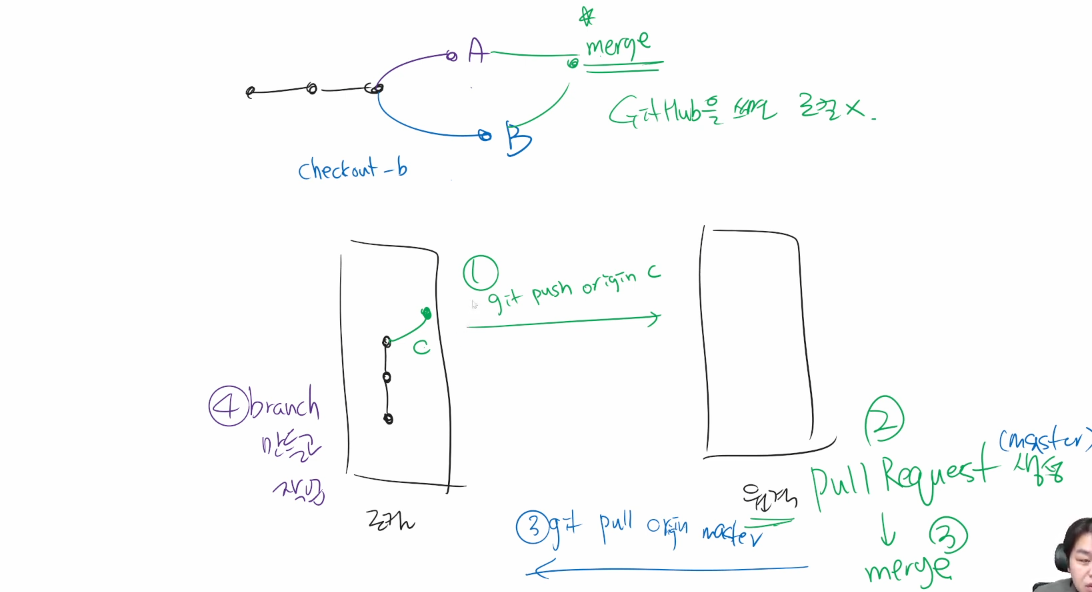 *
A
merge
GitHub을 쓰면 로컬 X.
B
checkout -b
① git push origin C
C
④ branch
만들고
작업
로컬
원격
②
(master)
Pull Request 생성
↓ ③
merge
③ git pull origin master